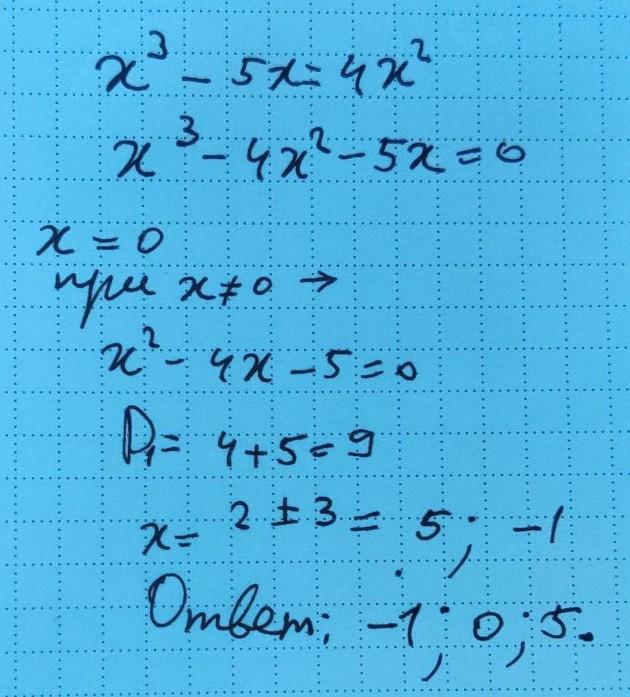 x³ - 5x = 4x²
x³ - 4x² - 5x = 0
x = 0
при x ≠ 0 →
x² - 4x - 5 = 0
D₁ = 4 + 5 = 9
x = 2 ± 3 = 5; -1
Ответ: -1; 0; 5.